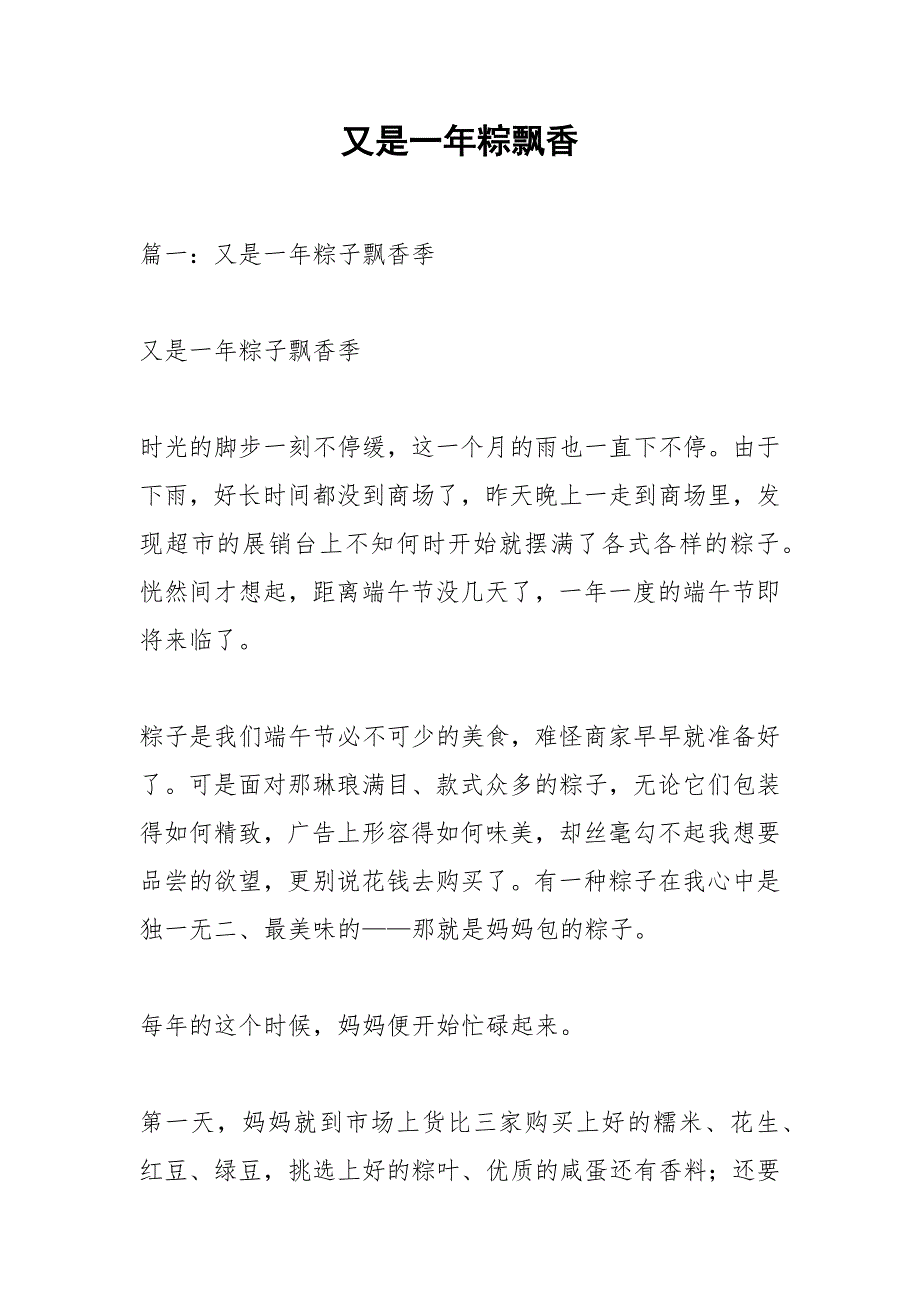 又是一年粽飘香
篇一：又是一年粽子飘香季
又是一年粽子飘香季
时光的脚步一刻不停缓，这一个月的雨也一直下不停。由于
下雨，好长时间都没到商场了，昨天晚上一走到商场里，发
现超市的展销台上不知何时开始就摆满了各式各样的粽子。
恍然间才想起，距离端午节没几天了，一年一度的端午节即
将来临了。
粽子是我们端午节必不可少的美食，难怪商家早早就准备好
了。可是面对那琳琅满目、款式众多的粽子，无论它们包装
得如何精致，广告上形容得如何味美，却丝毫勾不起我想要
品尝的欲望，更别说花钱去购买了。有一种粽子在我心中是
独一无二、最美味的——那就是妈妈包的粽子。
每年的这个时候，妈妈便开始忙碌起来。
第一天，妈妈就到市场上货比三家购买上好的糯米、花生、
红豆、绿豆，挑选上好的粽叶、优质的咸蛋还有香料；还要